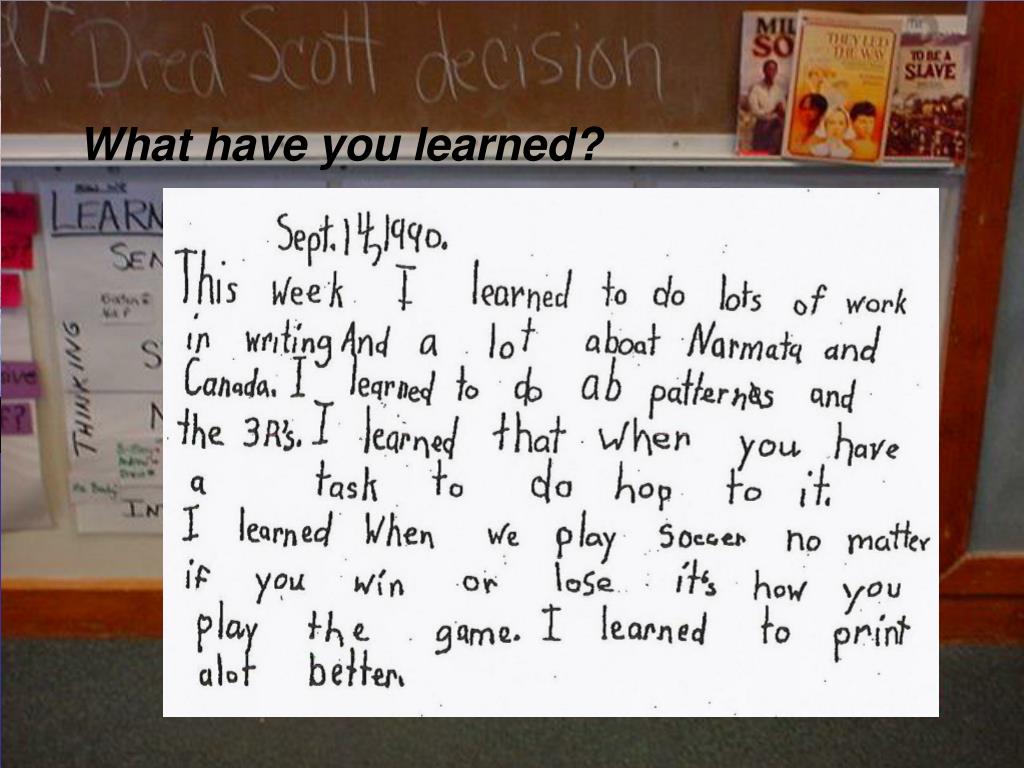 Dred Scott decision
MIL
SO
THEY LED
THE WAY
TO BE A
SLAVE
What have you learned?
LEARN
SEN
THINKING
S
N
IN
Sept. 14, 1990.
This week I learned to do lots of work
in writing And a lot about Narmata and
Canada. I learned to do ab patternes and
the 3R's. I learned that when you have
a task to do hop to it.
I learned When we play soccer no matter
if you win or lose it's how you
play the game. I learned to print
alot better.